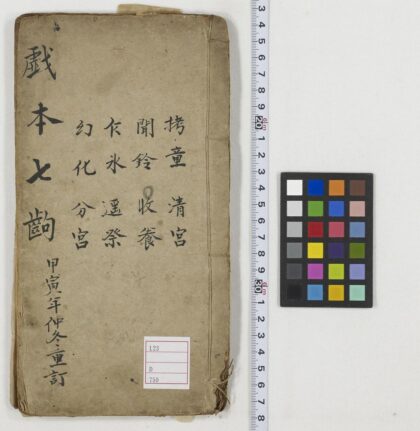 拷童 清宮
聞鈴 收養
乍氷 遥祭
幻化 分宮
戯本七齣
甲寅年仲冬重訂
123
D
750
3 4 5 6 7 8 9 20 1 2 3 4 5 6 7 8 9 30 1 2 3 4 5 6 7 8